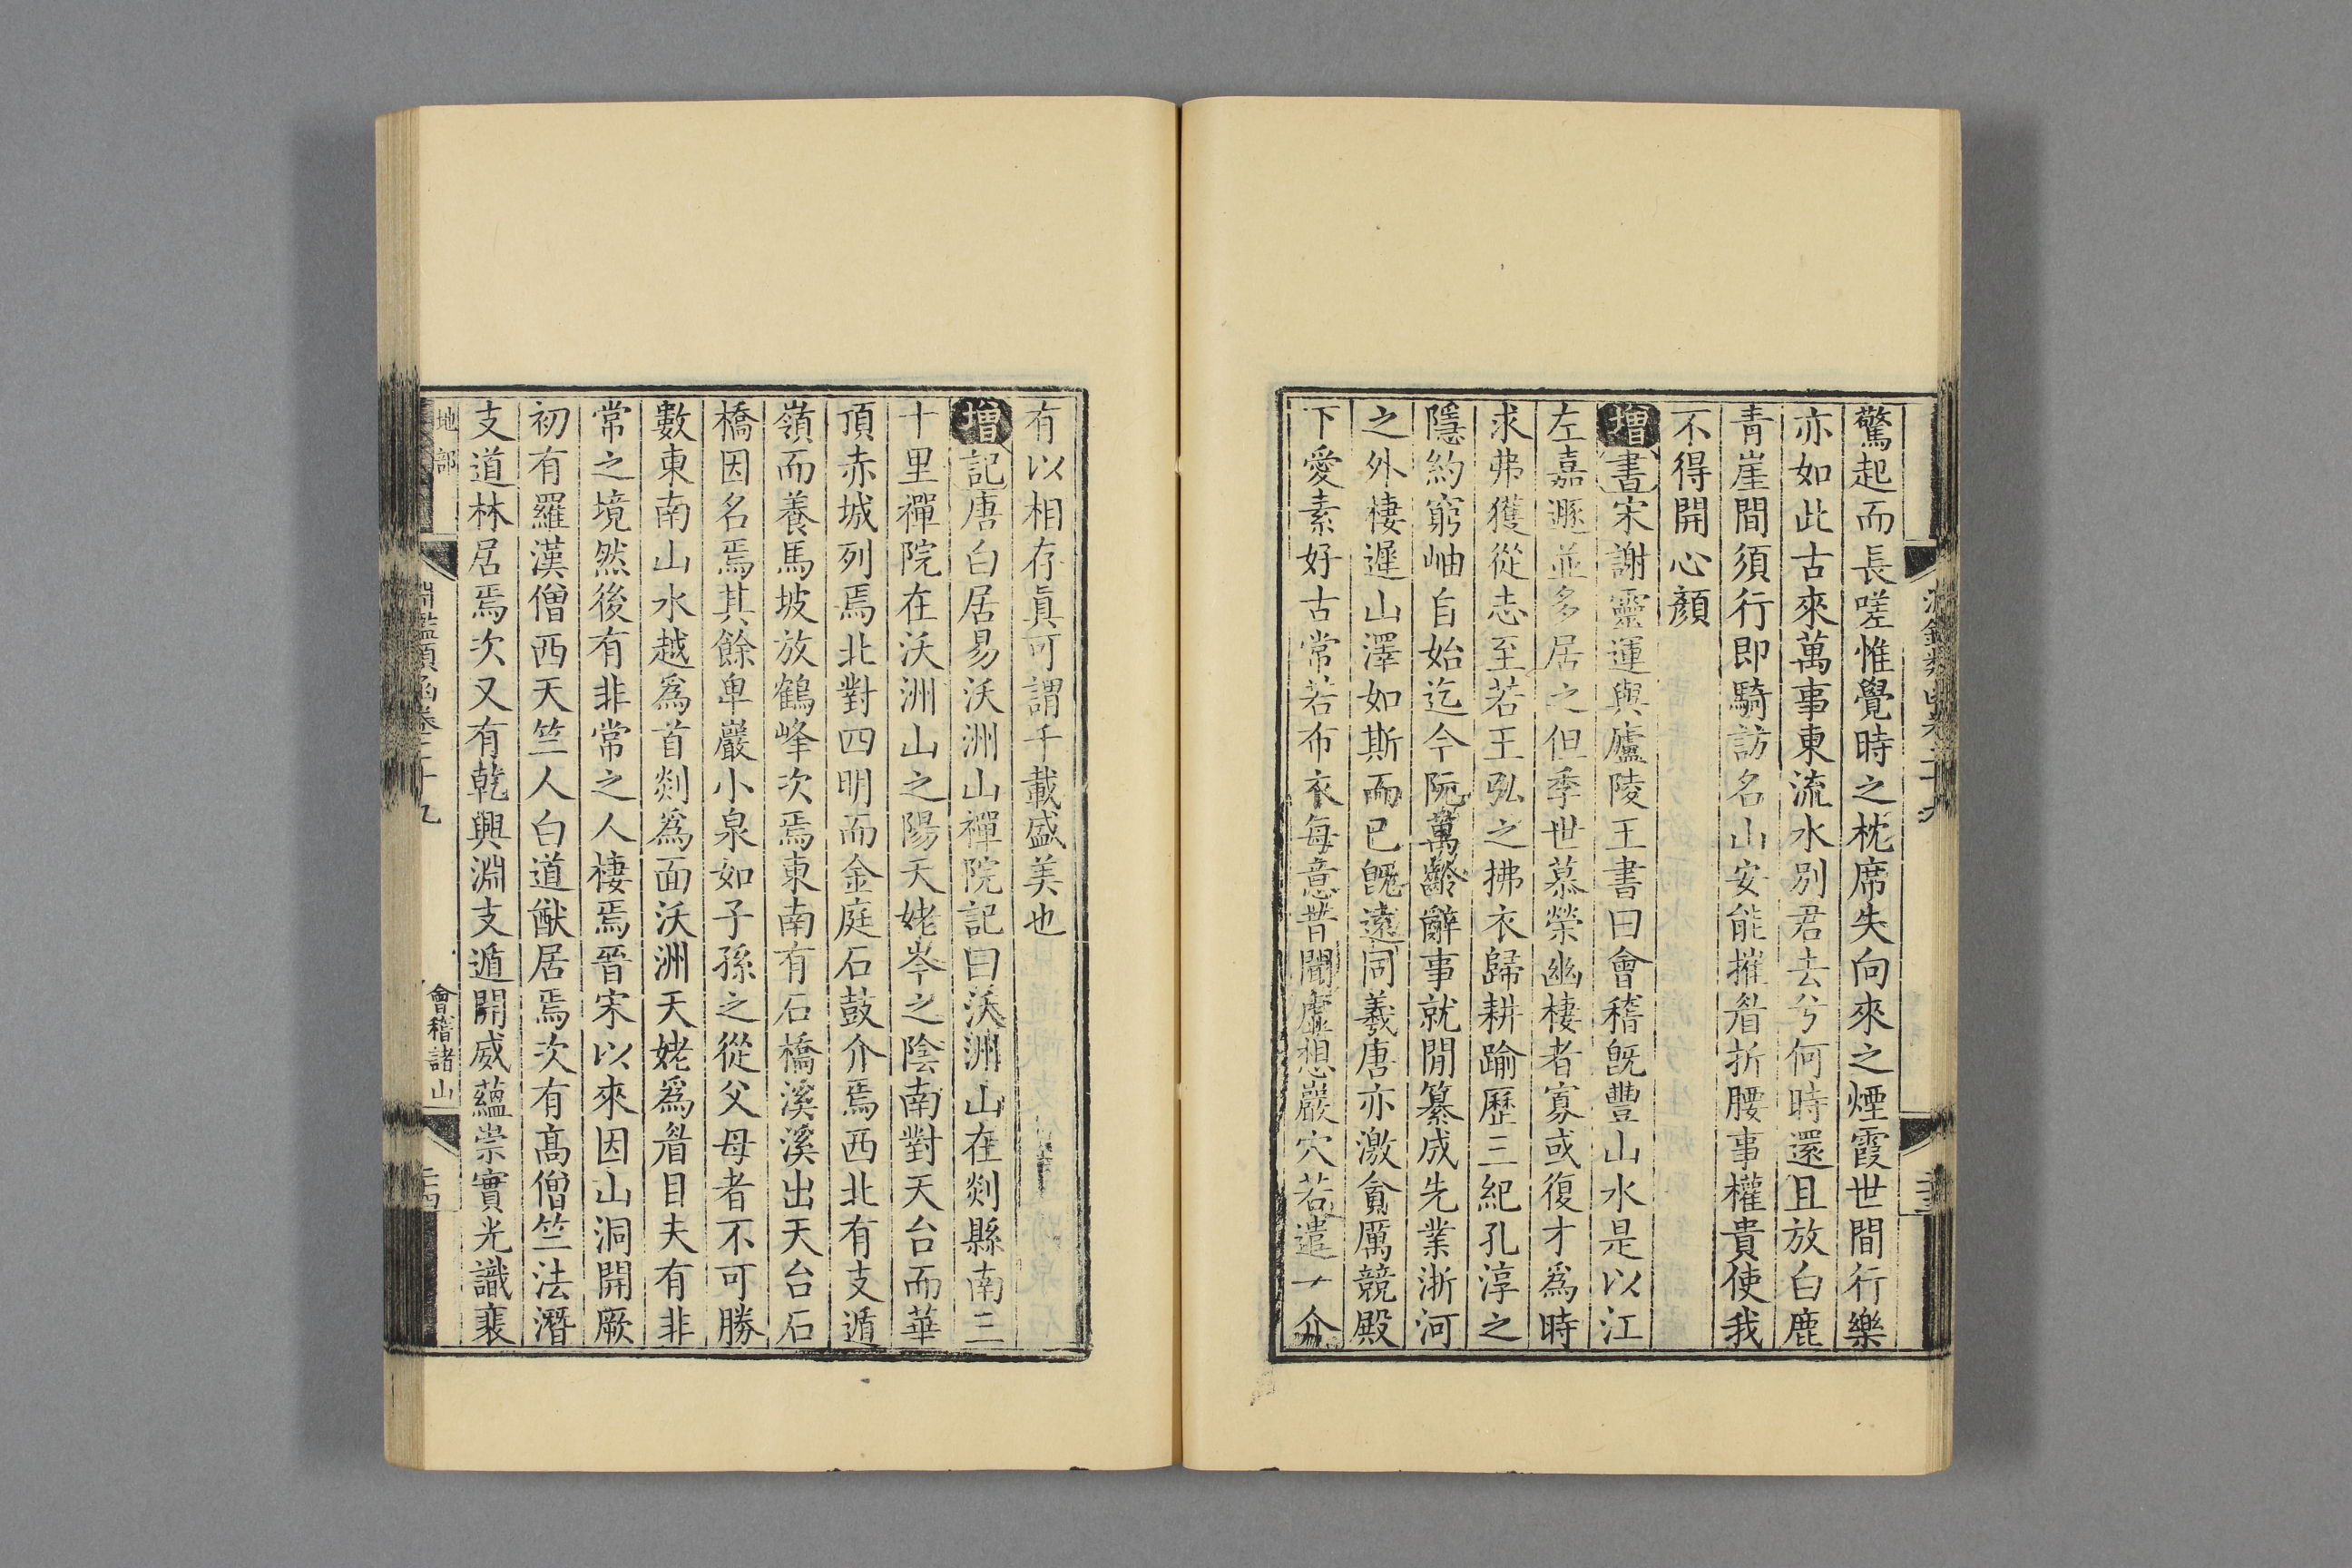 驚起而長嗟惟覺時之枕席失向來之煙霞世間行樂
亦如此古來萬事東流水別君去兮何時還且放白鹿
青崖間須行即騎訪名山安能摧眉折腰事權貴使我
不得開心顏
增書宋謝靈運與廬陵王書曰會稽旣豐山水是以江
左嘉遯並多居之但季世慕榮幽棲者寡或復才爲時
求弗獲從志至若王弘之拂衣歸耕踰歷三紀孔淳之
隱約窮岫自始迄今阮萬齡辭事就閒纂成先業浙河
之外棲遲山澤如斯而已旣遠同羲唐亦激貪厲競殿
下愛素好古常若布衣每意昔聞虛想巖穴若遣一介
有以相存眞可謂千載盛美也
增記唐白居易沃洲山禪院記曰沃洲山在剡縣南三
十里禪院在沃洲山之陽天姥岑之陰南對天台而華
頂赤城列焉北對四明而金庭石鼓介焉西北有支遁
嶺而養馬坡放鶴峰次焉東南有石橋溪溪出天台石
橋因名焉其餘卑巖小泉如子孫之從父母者不可勝
數東南山水越爲首剡爲面沃洲天姥爲眉目夫有非
常之境然後有非常之人棲焉晉宋以來因山洞開厥
初有羅漢僧西天竺人白道猷居焉次有高僧竺法潛
支道林居焉次又有乾興淵支遁開威蘊崇實光識裴
地部
淵鑑類函卷二十九
會稽諸山